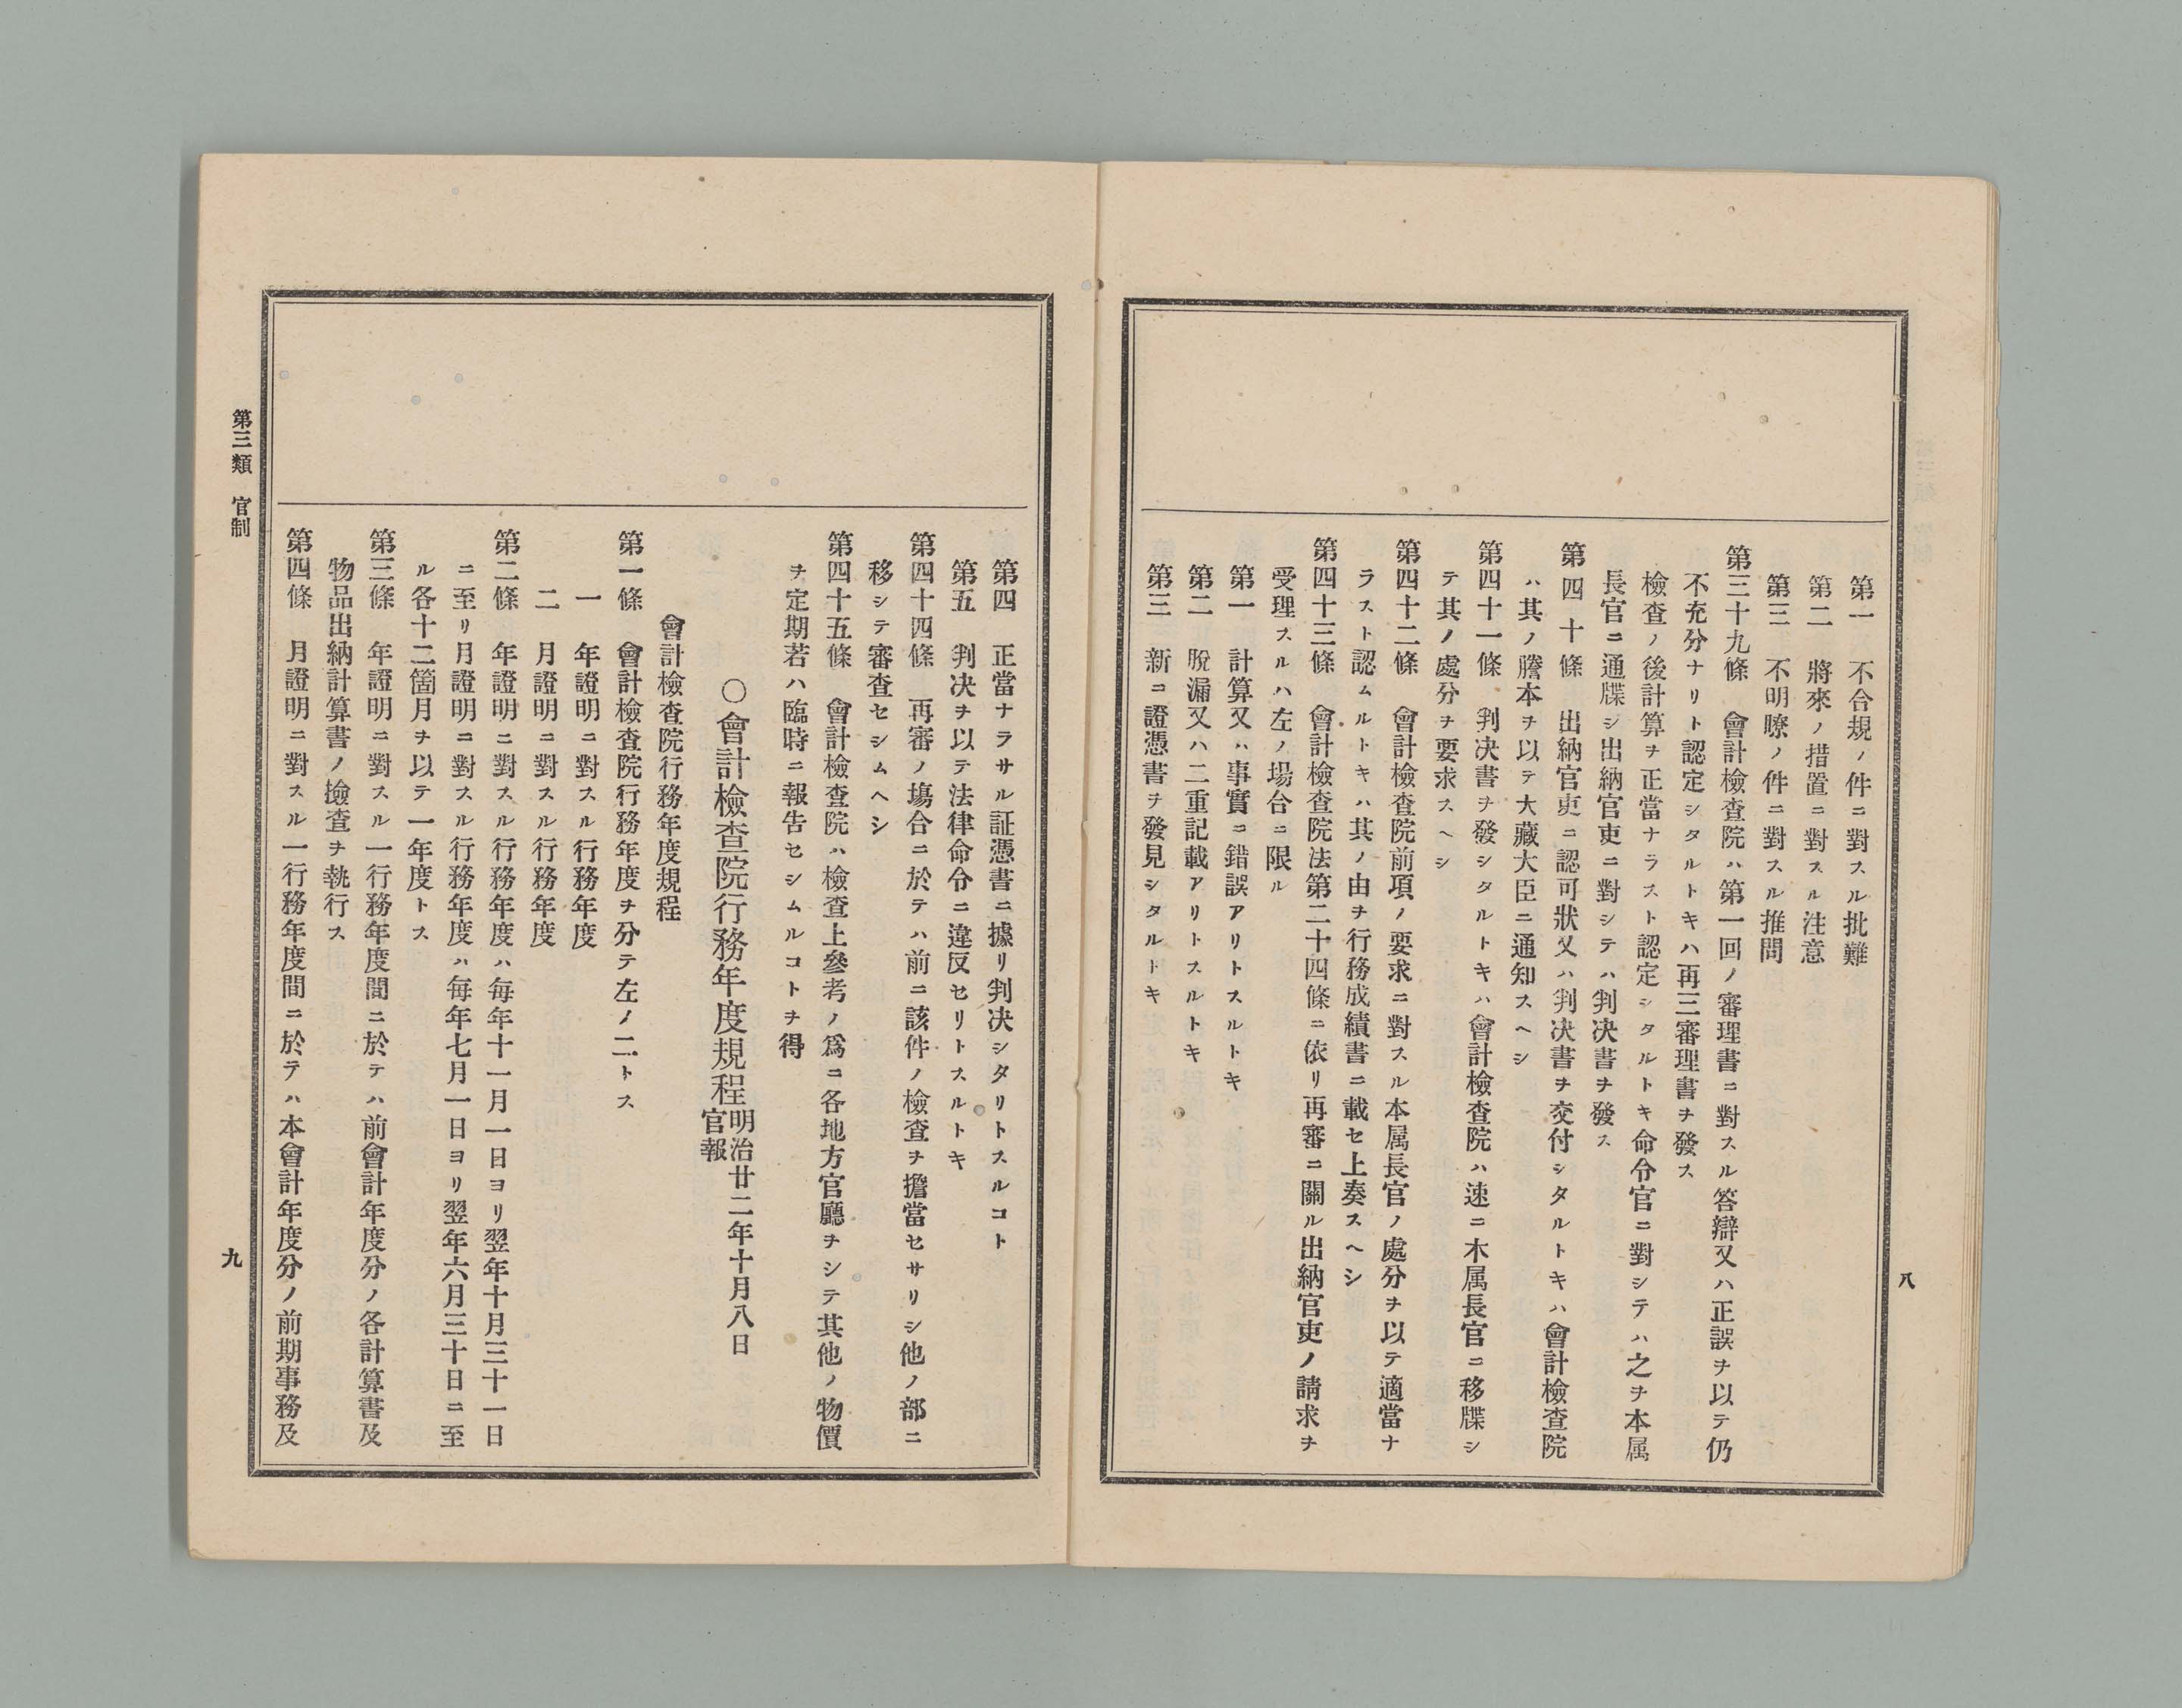 第一　不合規ノ件ニ對スル批難
第二　將來ノ措置ニ對スル注意
第三　不明瞭ノ件ニ對スル推問
第三十九條　會計檢査院ハ第一回ノ審理書ニ對スル答辯又ハ正誤ヲ以テ仍
不充分ナリト認定シタルトキハ再三審理書ヲ發ス
檢査ノ後計算ヲ正當ナラスト認定シタルトキ命令官ニ對シテハ之ヲ本属
長官ニ通牒シ出納官吏ニ對シテハ判决書ヲ發ス
第四十條　出納官吏ニ認可狀又ハ判决書ヲ交付シタルトキハ會計檢査院
ハ其ノ謄本ヲ以テ大藏大臣ニ通知スヘシ
第四十一條　判决書ヲ發シタルトキハ會計檢査院ハ速ニ木属長官ニ移牒シ
テ其ノ處分ヲ要求スヘシ
第四十二條　會計檢査院前項ノ要求ニ對スル本属長官ノ處分ヲ以テ適當ナ
ラスト認ムルトキハ其ノ由ヲ行務成績書ニ載セ上奏スヘシ
第四十三條　會計檢査院法第二十四條ニ依リ再審ニ關ル出納官吏ノ請求ヲ
受理スルハ左ノ場合ニ限ル
第一　計算又ハ事實ニ錯誤アリトスルトキ
第二　脫漏又ハ二重記載アリトスルトキ
第三　新ニ證憑書ヲ發見シタルトキ
八
第四　正當ナラサル証憑書ニ據リ判决シタリトスルコト
第五　判决ヲ以テ法律命令ニ違反セリトスルトキ
第四十四條　再審ノ塲合ニ於テハ前ニ該件ノ檢査ヲ擔當セサリシ他ノ部ニ
移シテ審査セシムヘシ
第四十五條　會計檢査院ハ檢査上參考ノ爲ニ各地方官廳ヲシテ其他ノ物價
ヲ定期若ハ臨時ニ報告セシムルコトヲ得
〇會計檢査院行務年度規程 明治廿二年十月八日
官報
會計檢査院行務年度規程
第一條　會計檢査院行務年度ヲ分テ左ノ二トス
一　年證明ニ對スル行務年度
二　月證明ニ對スル行務年度
第二條　年證明ニ對スル行務年度ハ毎年十一月一日ヨリ翌年十月三十一日
ニ至リ月證明ニ對スル行務年度ハ毎年七月一日ヨリ翌年六月三十日ニ至
ル各十二箇月ヲ以テ一年度トス
第三條　年證明ニ對スル一行務年度間ニ於テハ前會計年度分ノ各計算書及
物品出納計算書ノ撿査ヲ執行ス
第四條　月證明ニ對スル一行務年度間ニ於テハ本會計年度分ノ前期事務及
第三類　官制
九